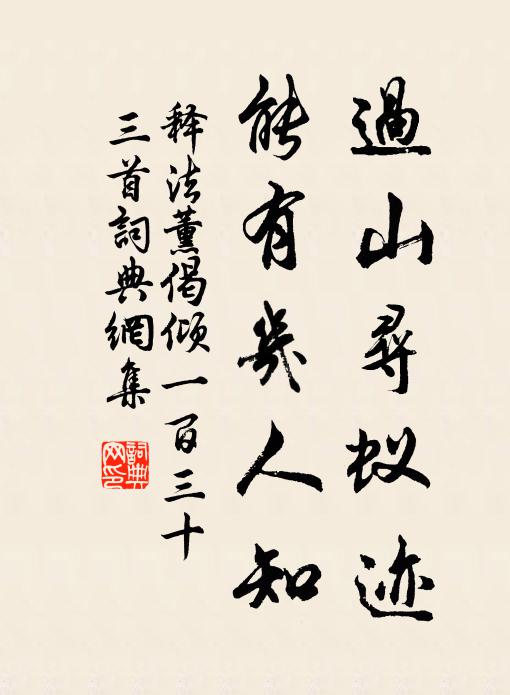 過山尋蚁迹
能有幾人知
释法薰偈傾一百三十
三首詞典網集
詞典网印